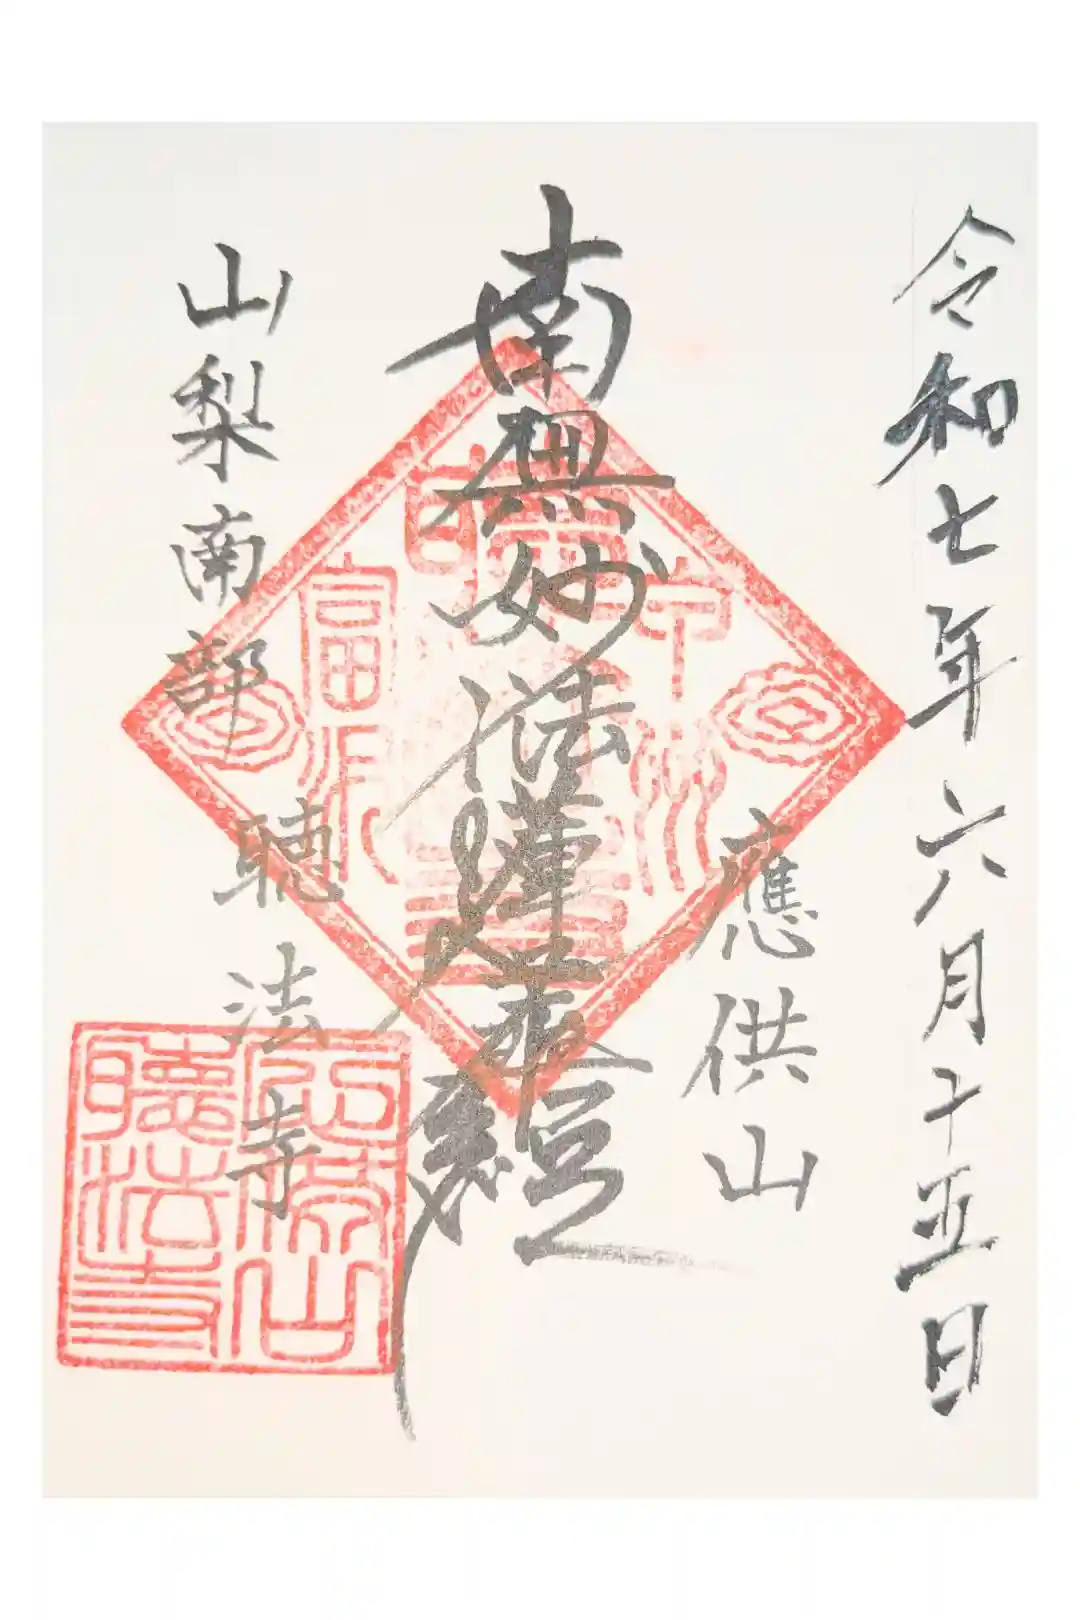 令和七年六月十五日
應供山
南無妙法蓮華經
山梨南部
聴法寺
甲州
應供山
聽法寺